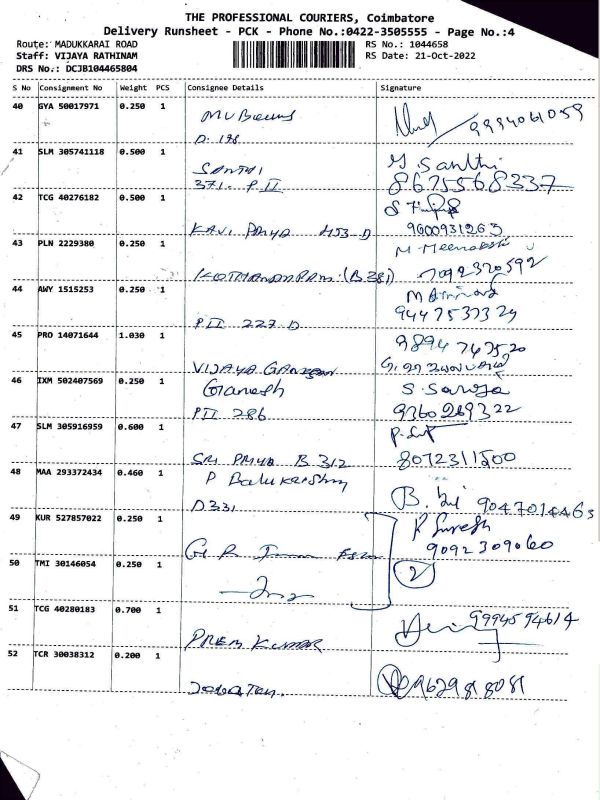 THE PROFESSIONAL COURIERS, Coimbatore
Delivery Runsheet - PCK - Phone No.:0422-3505555 - Page No.:4
Route: MADUKKARAI ROAD
RS No.: 1044658
Staff: VIJAYA RATHINAM
RS Date: 21-Oct-2022
DRS No.: DCJB104465804
S No Consignment No Weight PCS Consignee Details Signature
40 GYA 50017971 0.250 1
9994061059
D. 198
41 SLM 305741118 0.500 1
SANTHI M. Santhi
371. P II 8675568337
42 TCG 40276182 0.500 1
KAVI PRIYA 453 D 9600931263
43 PLN 2229380 0.250 1
M. Meenakshi
(B 381) 7092320592
44 AWY 1515253 0.250 1
P II 227 D
45 PRO 14071644 1.030 1
VIJAYA
46 IXM 502407569 0.250 1
Ganesh S. Saroja
PII 286 9360269322
47 SLM 305916959 0.600 1
SRI PRIYA B 312 8072311500
48 MAA 293372434 0.460 1
P Balakrishnan
D331 9047014463
49 KUR 527857022 0.250 1
K Suresh
9092309060
50 TMI 30146054 0.250 1
2
51 TCG 40280183 0.700 1
9994594614
PREM KUMAR
52 TCR 30038312 0.200 1
9629818081